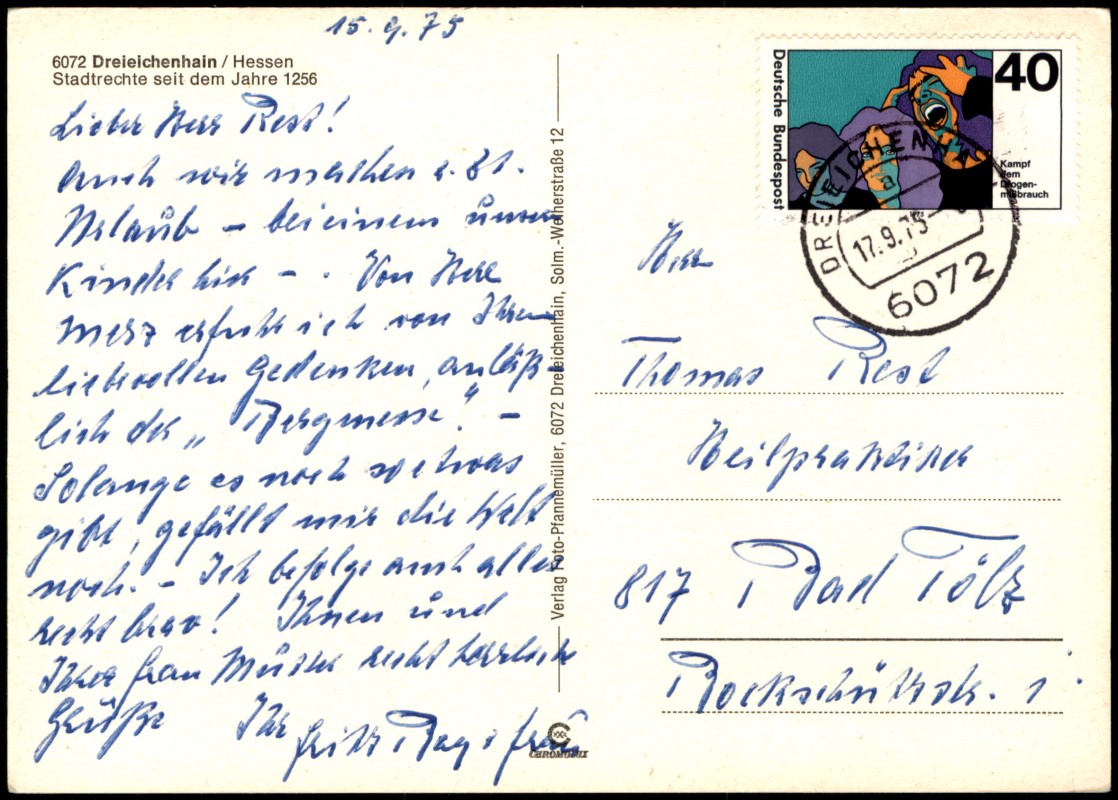 15.9.75
6072 Dreieichenhain / Hessen
Stadtrechte seit dem Jahre 1256
Lieber Herr Rest!
Auch wir machen z. Zt.
Urlaub – bei einem unserer
Kinder hier – . Von Herr
Merz erfuhr ich von Ihrem
liebevollen Gedenken, anläß-
lich der „Bergmesse“. –
Solange es noch so etwas
gibt, gefällt mir die Welt
noch. – Ich befolge auch alles
recht brav! Ihnen und
Ihrer Frau Mutter recht herzliche
Grüße Ihr
Fritz u. Frau
Verlag Foto-Pfannemüller, 6072 Dreieichenhain, Solm.-Weiherstraße 12
CHROMOLUX
Deutsche Bundespost
40
Kampf
dem
Drogen-
mißbrauch
DREIEICHENHAIN
a
17.9.75
6072
Herr
Thomas Rest
Heilpraktiker
817 Bad Tölz
Bockschützstr. 1